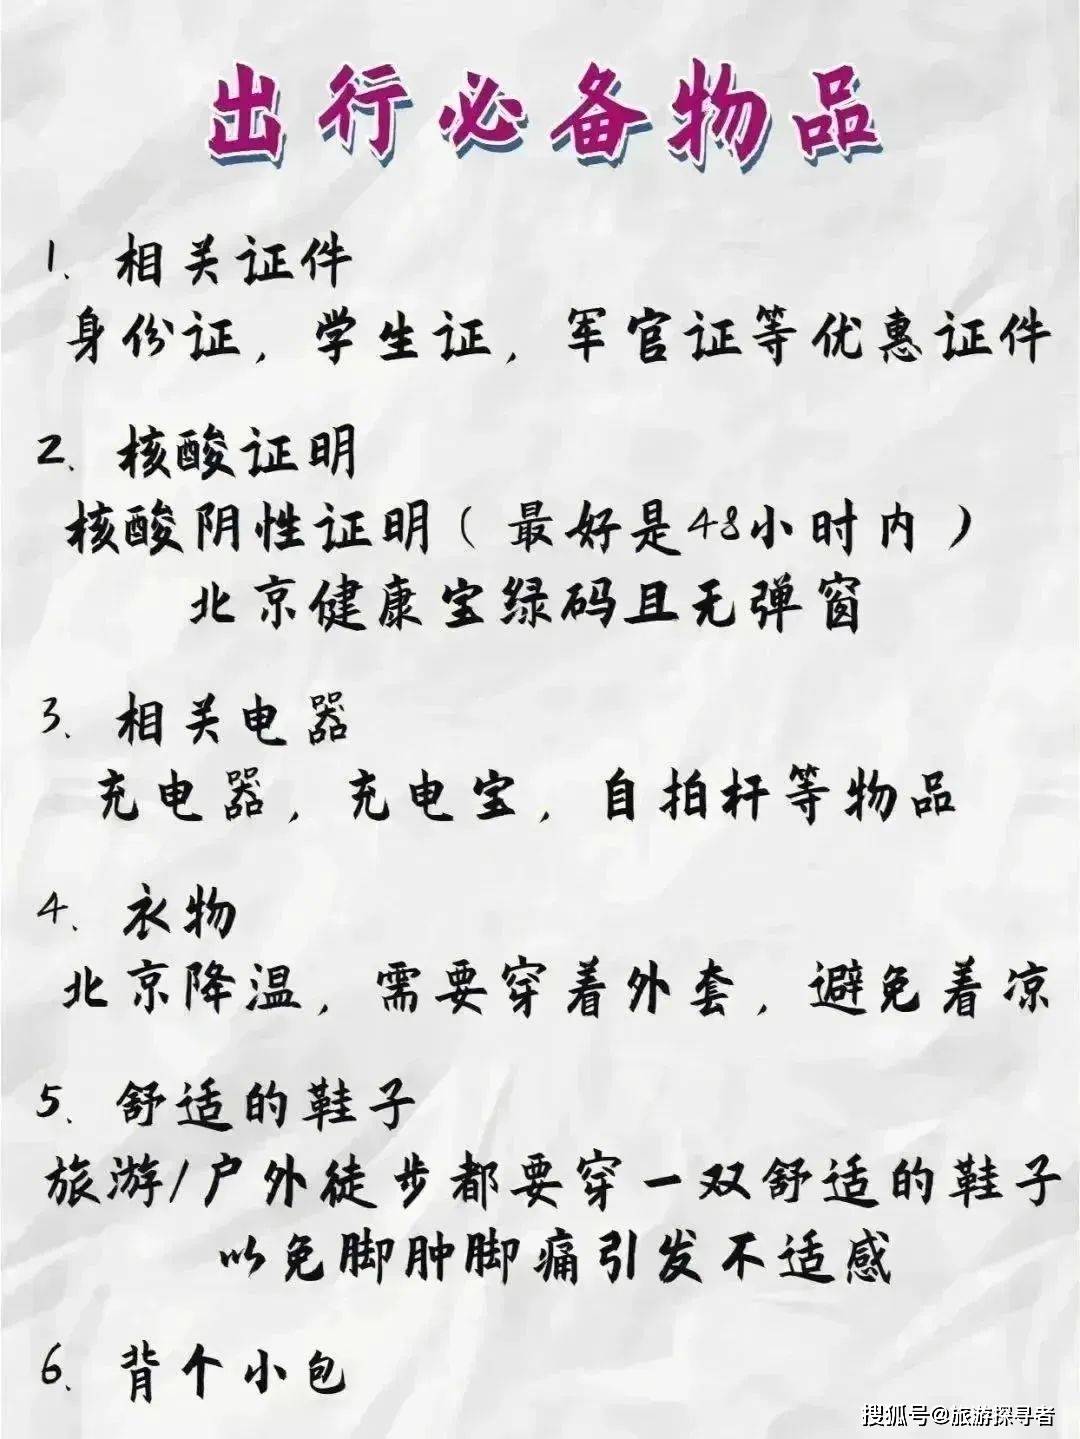 出行必备物品
1、相关证件
身份证，学生证，军官证等优惠证件
2、核酸证明
核酸阴性证明（最好是48小时内）
北京健康宝绿码且无弹窗
3、相关电器
充电器，充电宝，自拍杆等物品
4、衣物
北京降温，需要穿着外套，避免着凉
5、舒适的鞋子
旅游/户外徒步都要穿一双舒适的鞋子
以免脚肿脚痛引发不适感
6、背个小包
搜狐号@旅游探寻者